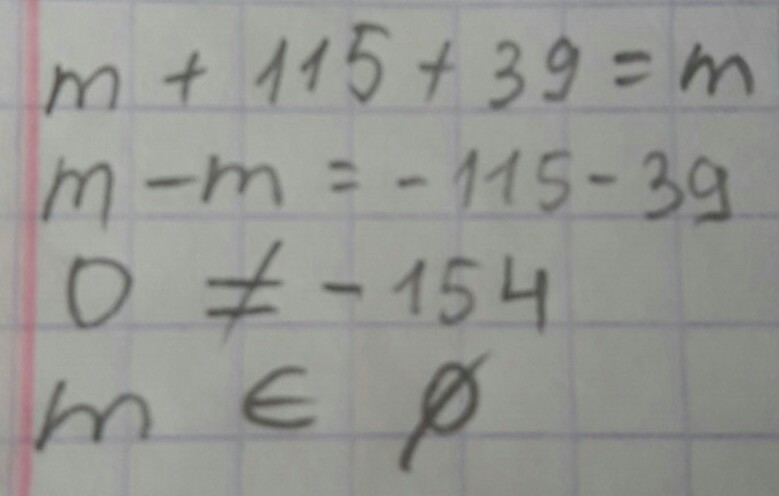 m + 115 + 39 = m
m - m = - 115 - 39
0 ≠ - 154
m ∈ ∅